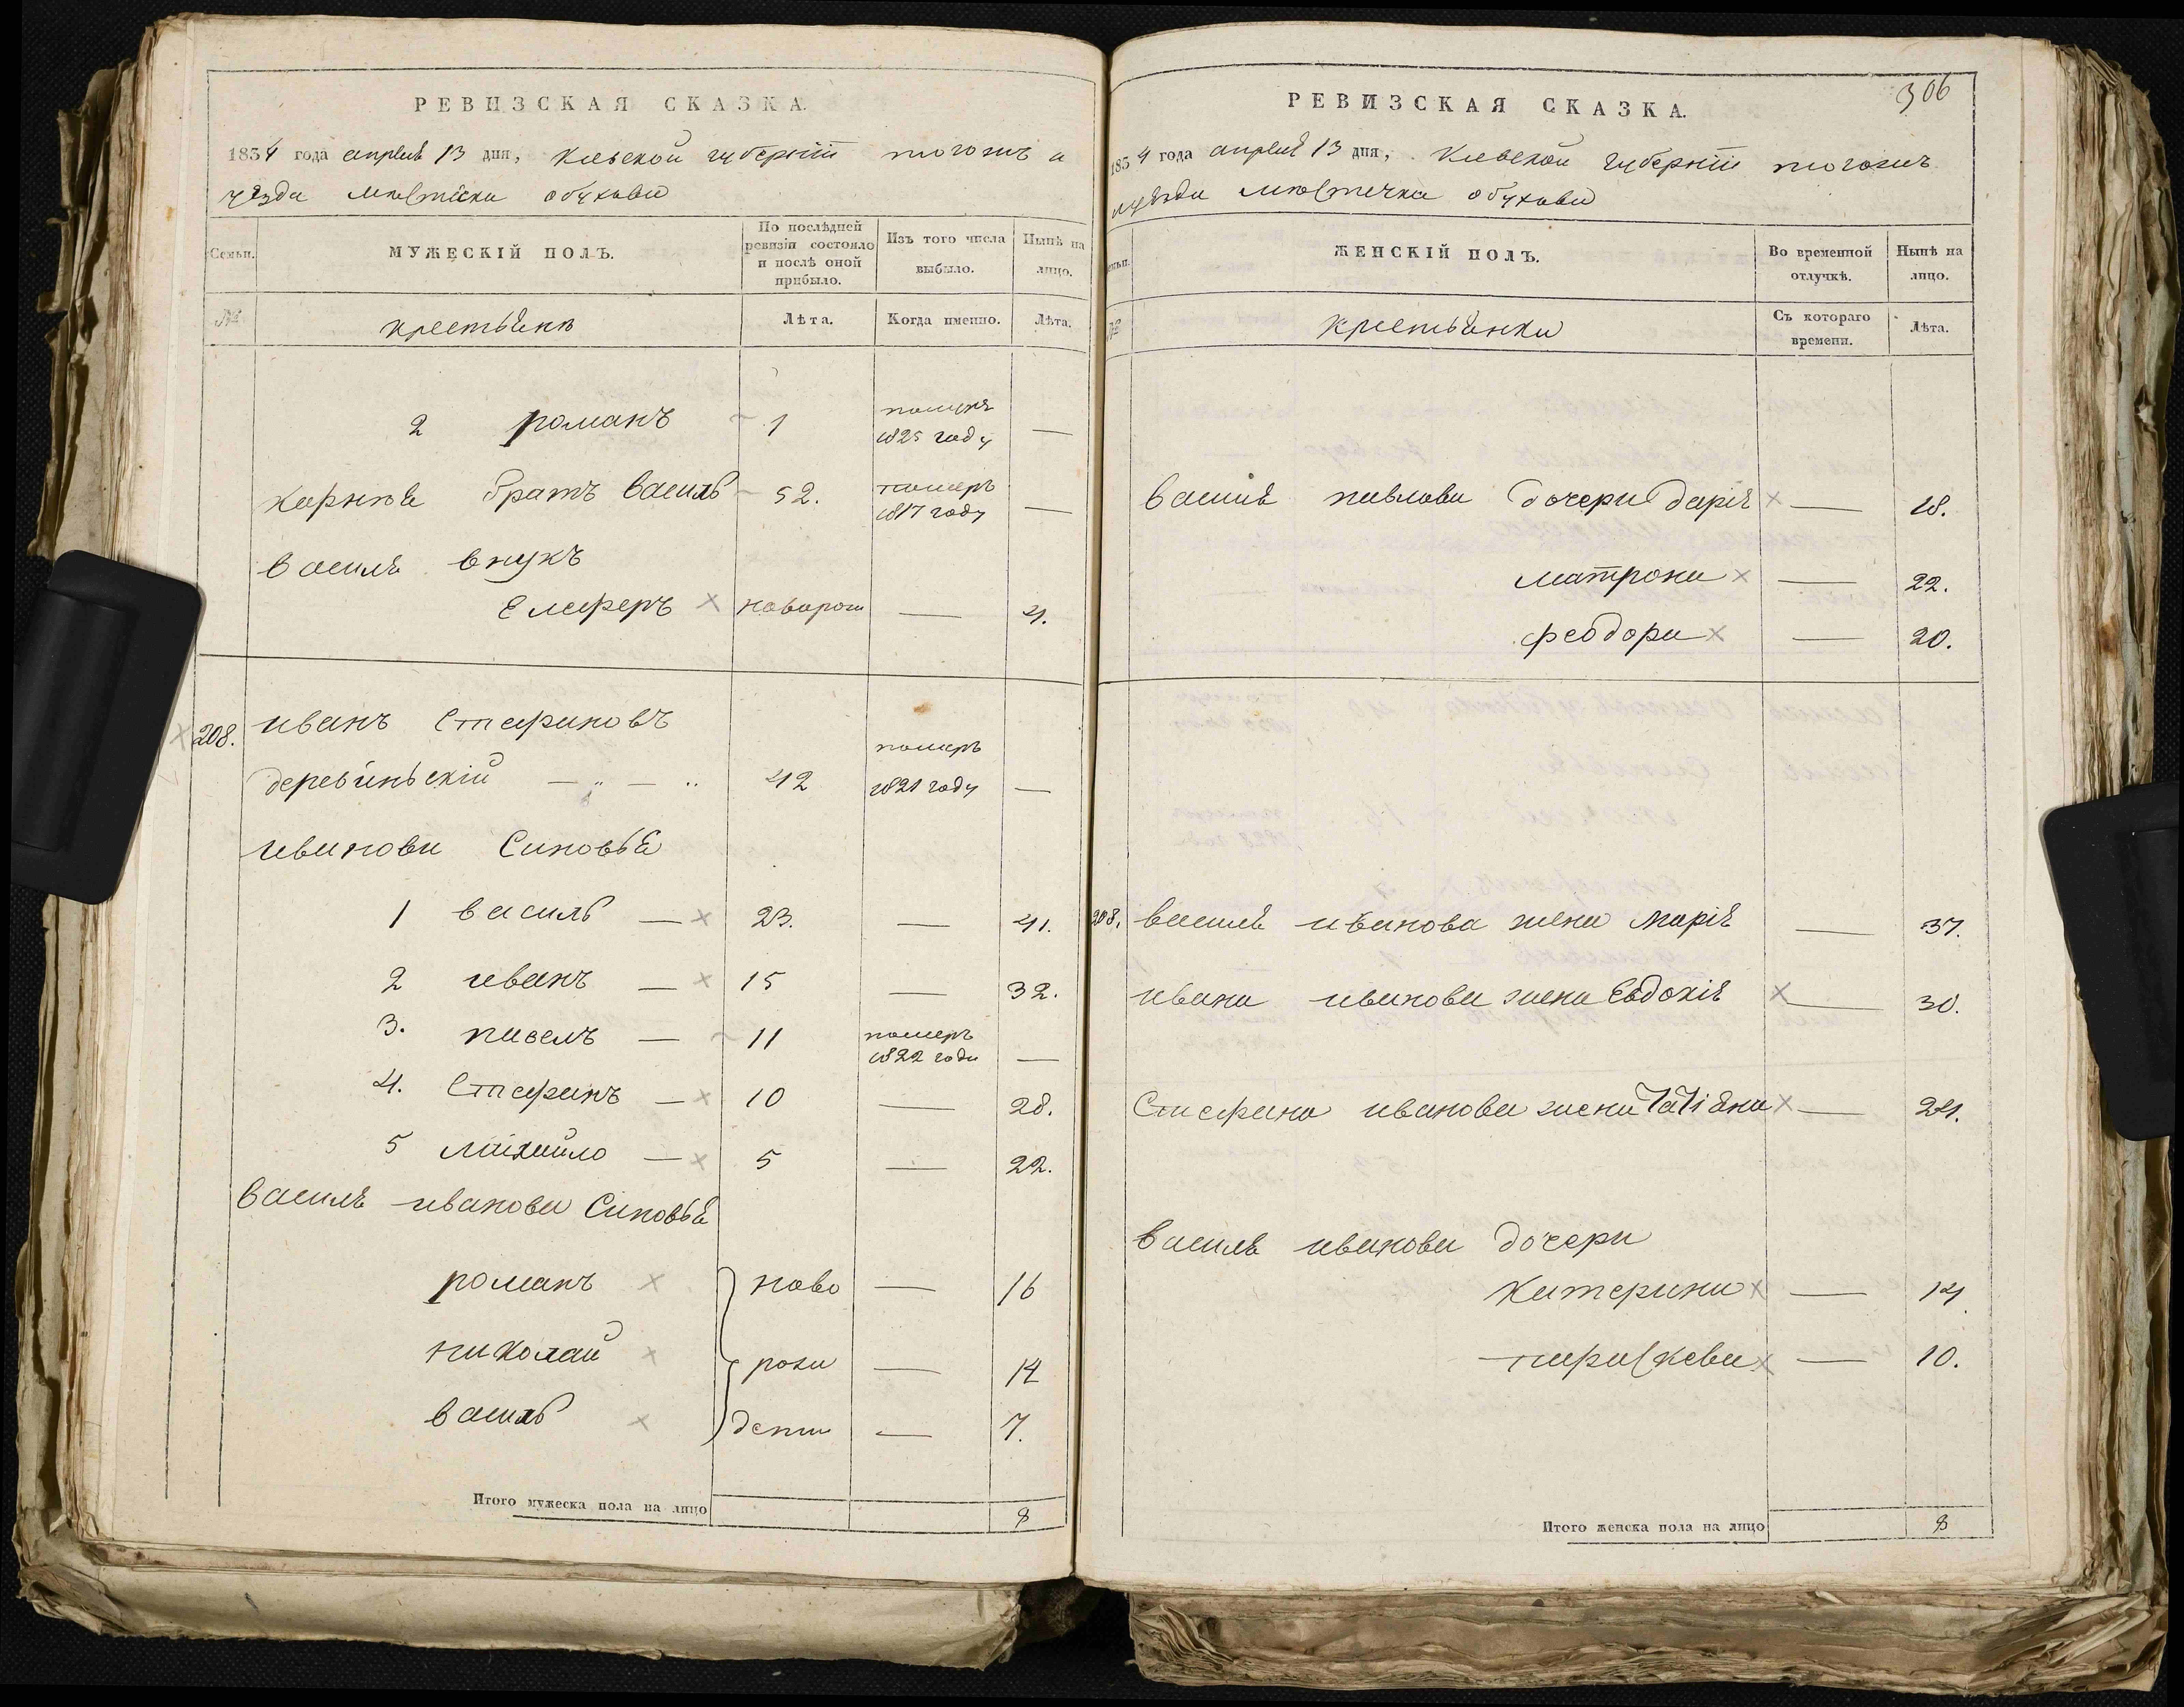 РЕВИЗСКАЯ СКАЗКА.
1834 года апреля 13 дня, Киевской губернии тогожъ
уезда местечка обухова
Семьи.
МУЖЕСКІЙ ПОЛЪ.
По послѣдней ревизіи состояло и послѣ оной прибыло.
Изъ того числа выбыло.
Нынѣ на лицо.
№
крестьяне
Лѣта.
Когда именно.
Лѣта.
2 романъ 1 померъ 1825 году —
братъ василь 52. померъ 1817 году —
василя внукъ
Елеферъ новорож — 4.
208. иванъ Стефановъ
деревяньскій 42 померъ 1821 году —
иванова Синовья
1 василь — 23. — 41.
2 иванъ — 15 — 32.
3. павелъ — 11 померъ 1822 года —
4. Стефанъ — 10 — 28.
5 михайло — 5 — 22.
василя иванова Синовья
романъ ново — 16
николай рожи — 14
василь дени — 7.
Итого мужеска пола на лицо 8
306
РЕВИЗСКАЯ СКАЗКА.
1834 года апреля 13 дня, Киевской губернии тогожъ
уезда местечка обухова
Семьи.
ЖЕНСКІЙ ПОЛЪ.
Во временной отлучкѣ.
Нынѣ на лицо.
№
крестьянки
Съ котораго времени.
Лѣта.
василя павлова дочери даріѣ — 18.
матрона — 22.
феодора — 20.
208. василя иванова жена маріѣ — 37.
ивана иванова жена Евдокіѣ — 30.
Стефана иванова жена Татіяна — 24.
василя иванова дочери
Катерина — 14
параскева — 10.
Итого женска пола на лицо 8